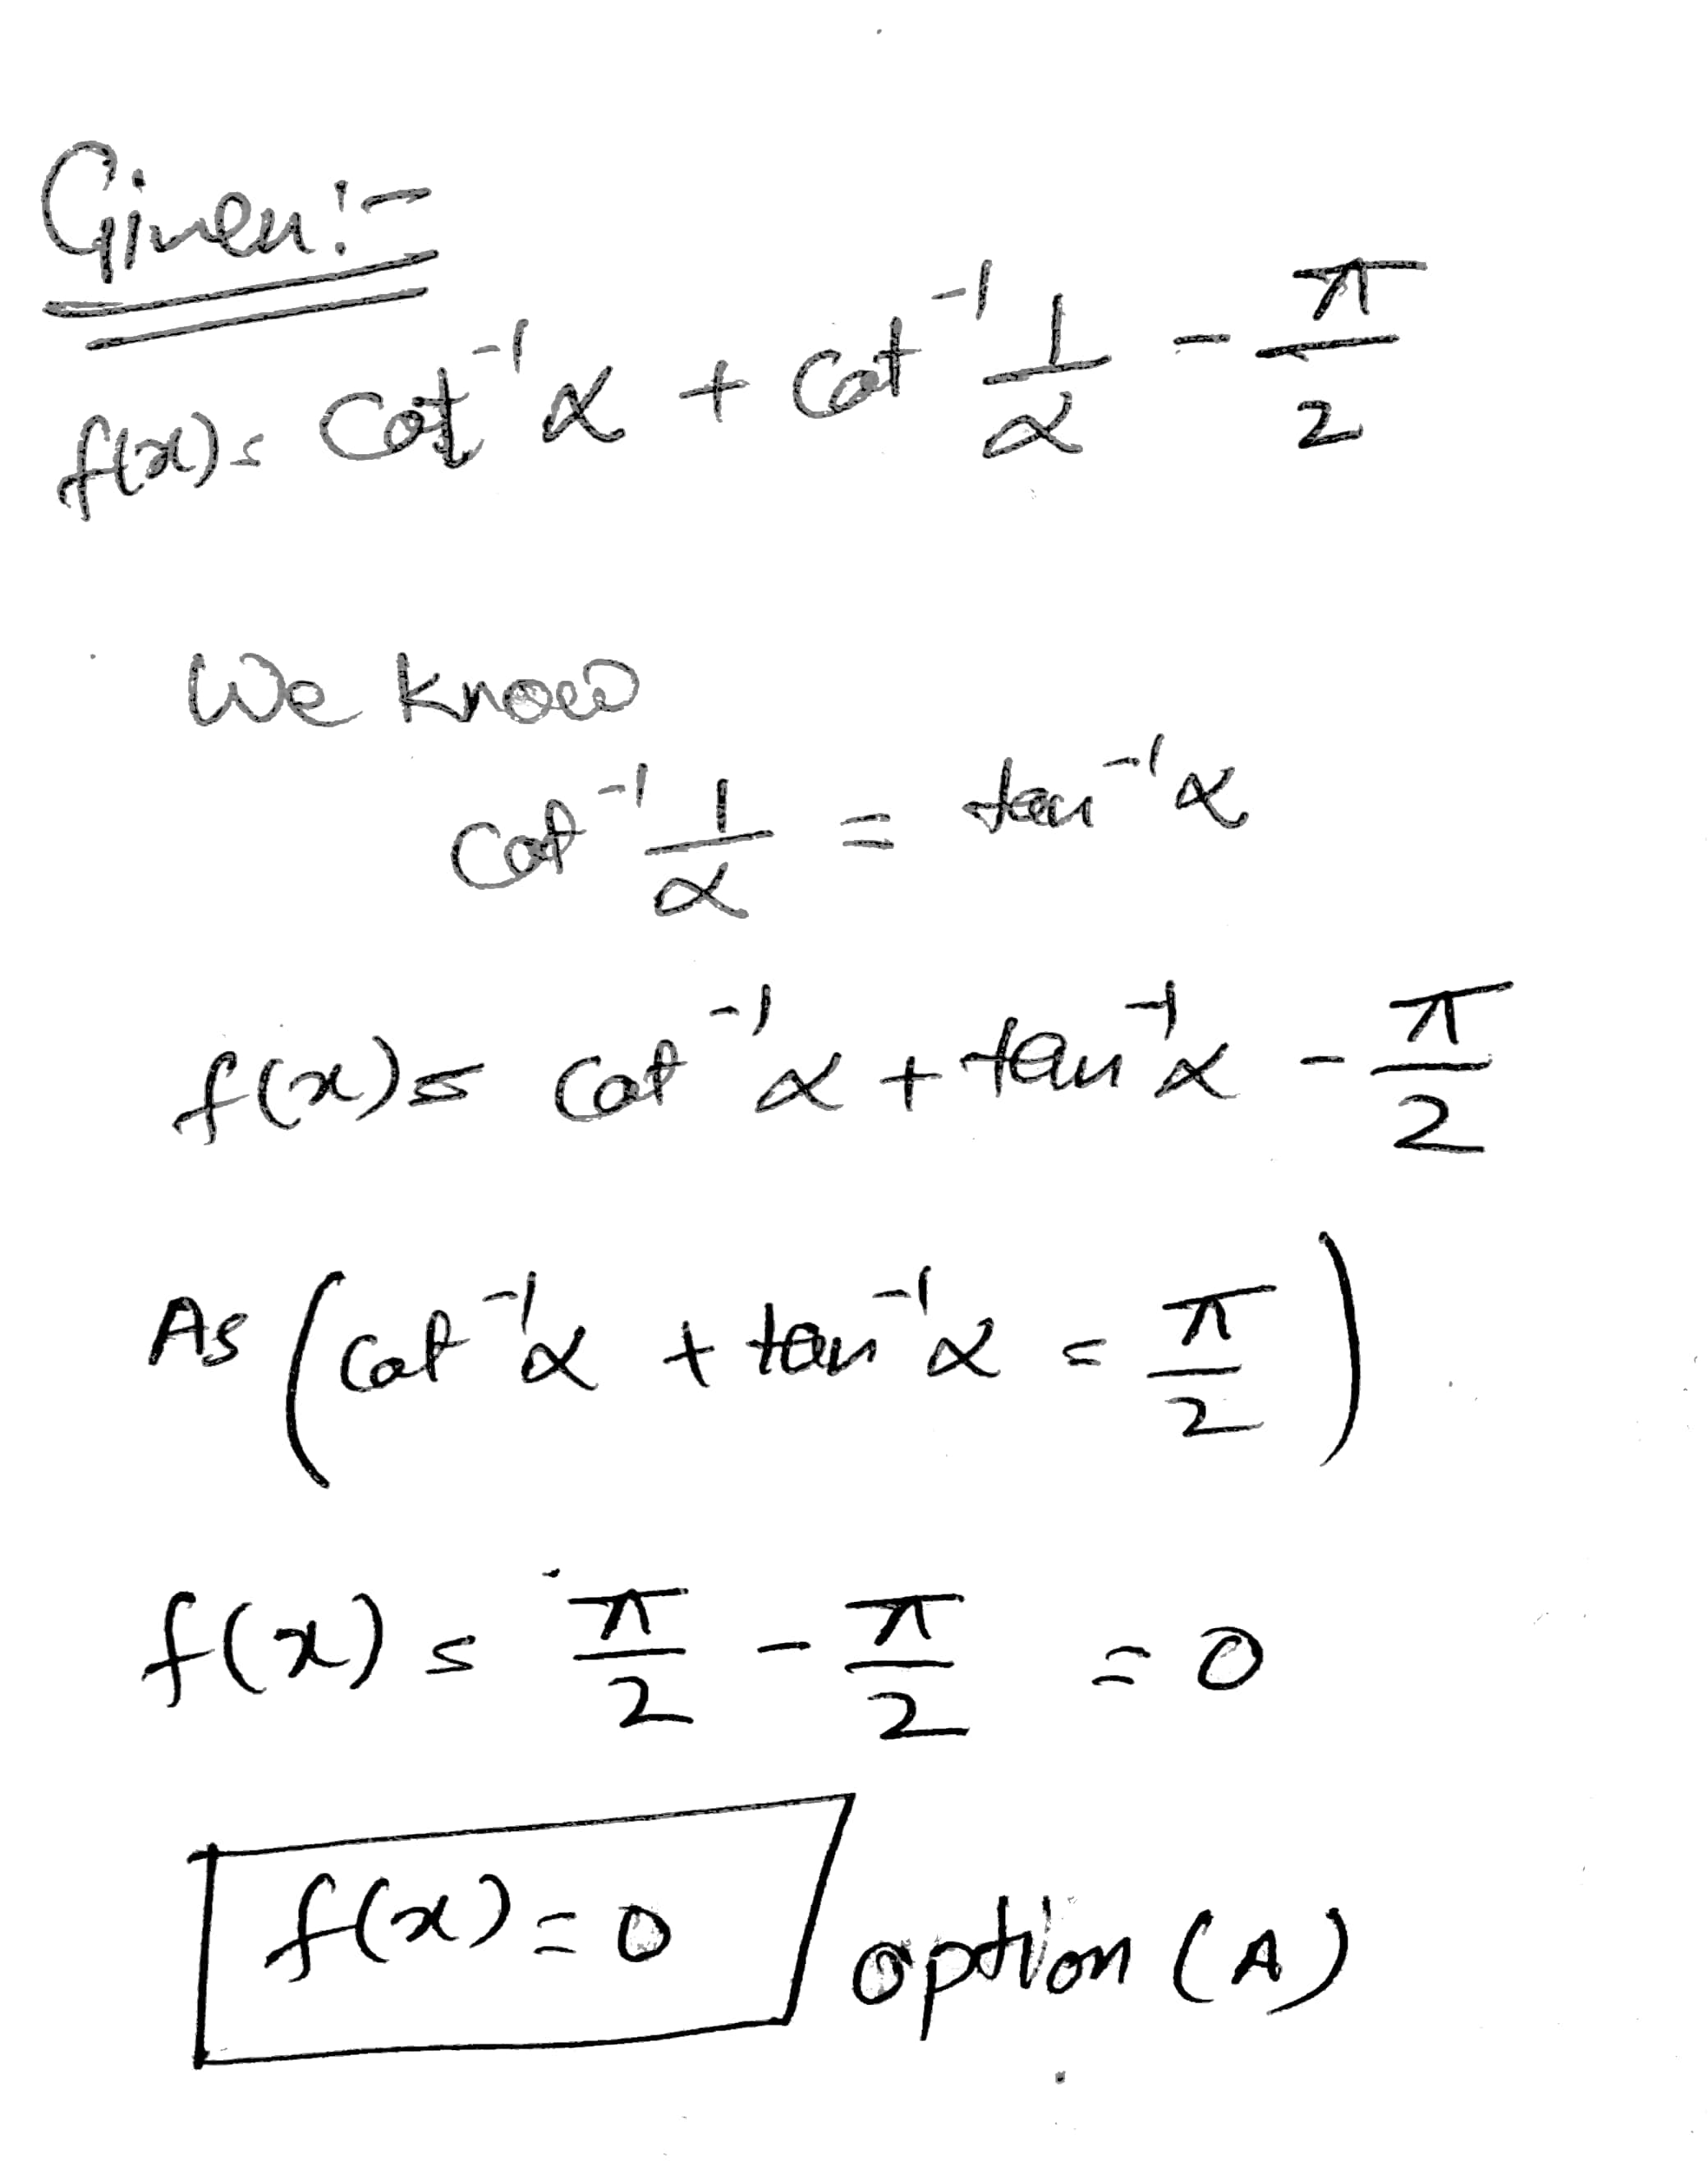 Given:-
f(x)= Cot⁻¹x + Cot⁻¹ 1/x - π/2
We know
Cot⁻¹ 1/x = tan⁻¹x
f(x)= Cot⁻¹x + tan⁻¹x - π/2
As (Cot⁻¹x + tan⁻¹x = π/2)
f(x) = π/2 - π/2 = 0
f(x)=0 option (A)